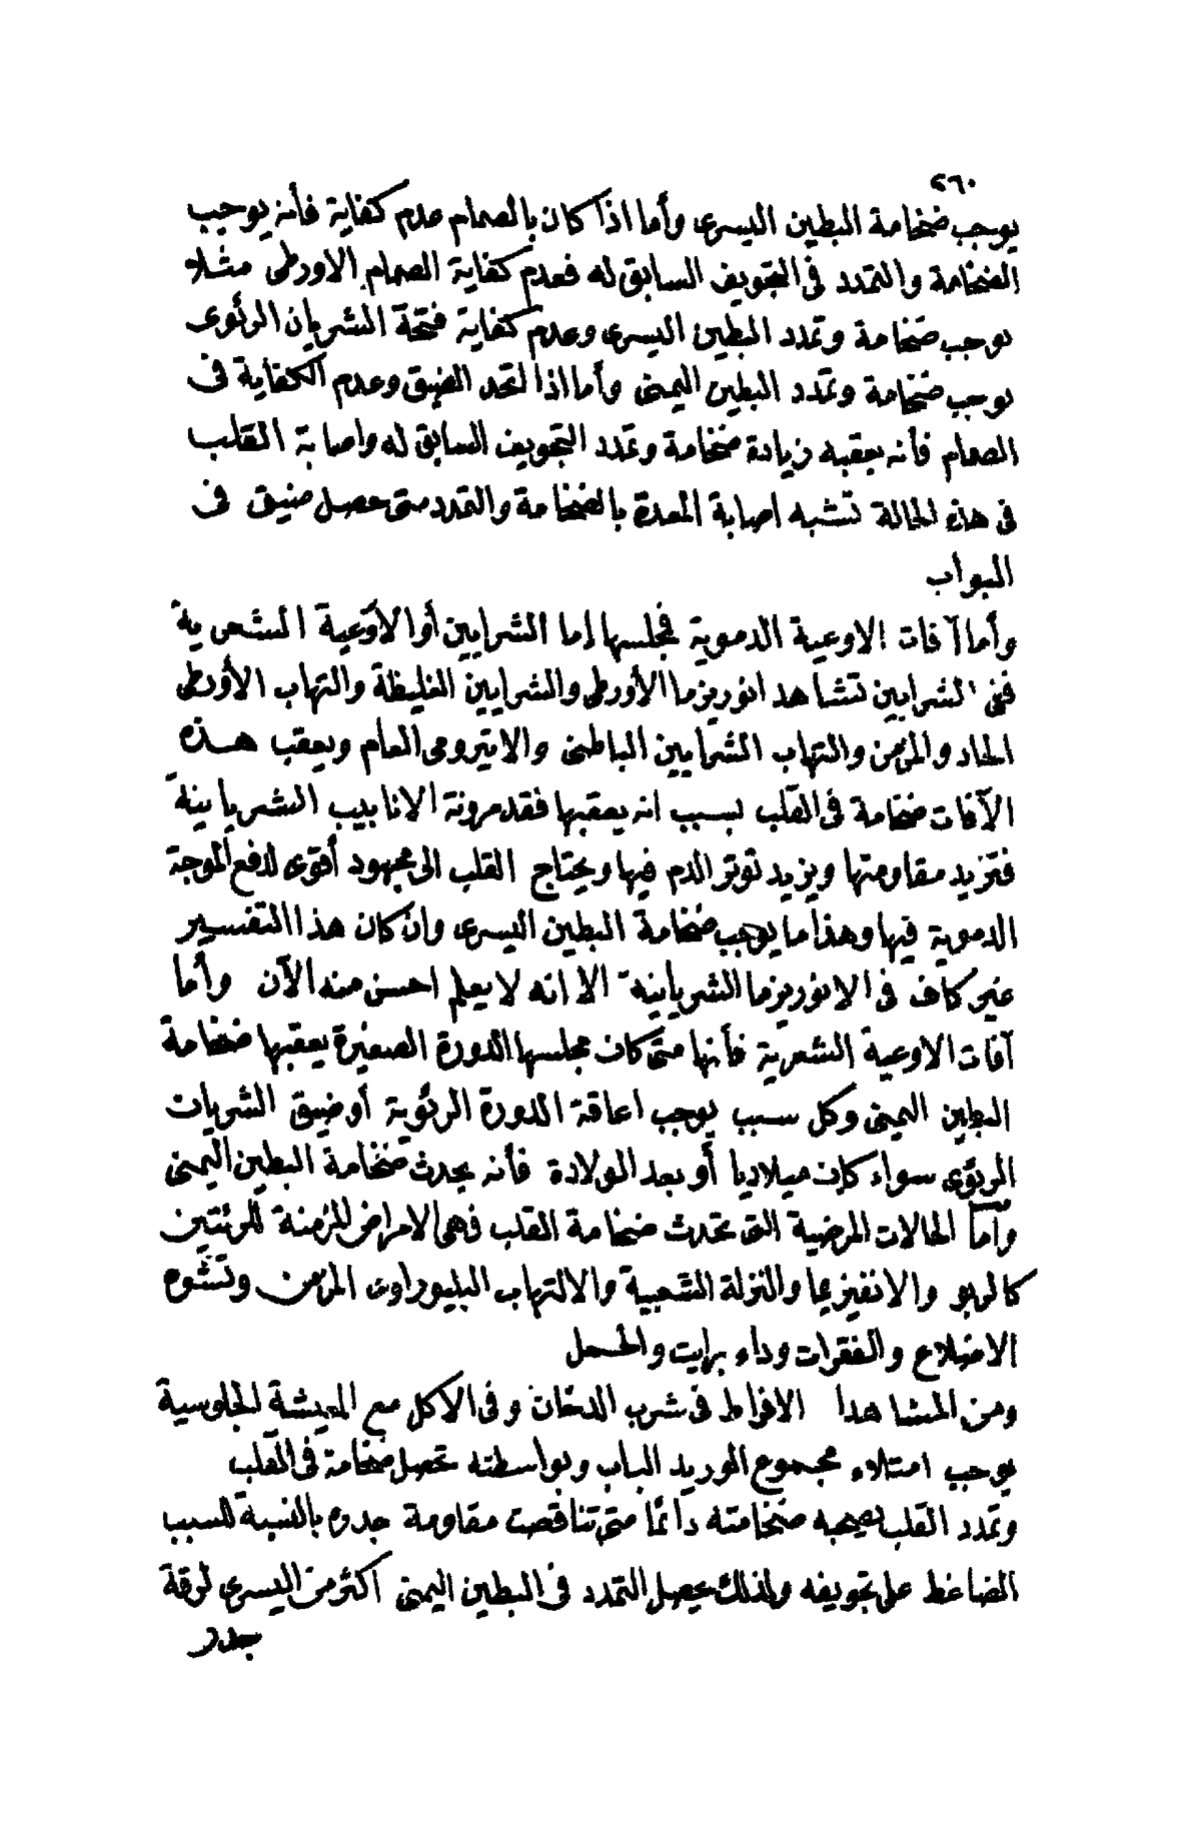 ٢٦٠
يوجب ضخامة البطين اليسرى وأما اذا كان بالصمام عدم كفاية فأنه يوجب
الضخامة والتمدد فى التجويف السابق له فعدم كفاية الصمام الاورطى مثلا
يوجب ضخامة وتمدد البطين اليسرى وعدم كفاية فتحة الشريان الرئوى
يوجب ضخامة وتمدد البطين اليمنى وأما اذا اتحد الضيق وعدم الكفاية فى
الصمام فأنه يعقبه زيادة ضخامة وتمدد التجويف السابق له واصابة القلب
فى هذه الحالة تشبه اصابة المعدة بالضخامة والتمدد متى حصل ضيق فى
البواب
وأما آفات الاوعية الدموية فمجلسها إما الشرايين أو الأوعية الشعرية
ففى الشرايين تشاهد انوريزما الأورطى والشرايين الغليظة والتهاب الأورطى
الحاد والمزمن والتهاب الشرايين الباطنى والايترومى العام ويعقب هذه
الآفات ضخامة فى القلب بسبب انه يعقبها فقد مرونة الانابيب الشريانية
فتزيد مقاومتها ويزيد توتر الدم فيها ويحتاج القلب الى مجهود أقوى لدفع الموجة
الدموية فيها وهذا ما يوجب ضخامة البطين اليسرى وان كان هذا التفسير
غير كاف فى الانوريزما الشريانية الا انه لا يعلم احسن منه الآن وأما
آفات الاوعية الشعرية فأنها متى كان مجلسها الدورة الصغيرة يعقبها ضخامة
البطين اليمنى وكل سبب يوجب اعاقة الدورة الرئوية أو ضيق الشريان
الرئوى سواء كان ميلاديا أو بعد الولادة فأنه يحدث ضخامة البطين اليمنى
وأما الحالات المرضية التى تحدث ضخامة القلب فهى الامراض المزمنة للرئتين
كالربو والانفيزيما والنزلة الشعبية والالتهاب البليوراوى المزمن وتشوه
الاضلاع والفقرات وداء برايت والحمل
ومن المشاهد ا الافراط فى شرب الدخان وفى الأكل مع المعيشة الجلوسية
يوجب امتلاء مجموع الوريد الباب وبواسطته تحصل ضخامة فى القلب
وتمدد القلب يصحبه ضخامته دائما متى تناقصت مقاومة جدره بالنسبة للسبب
الضاغط على تجويفه ولذلك يحصل التمدد فى البطين اليمنى أكثر من اليسرى لرقة
جدر